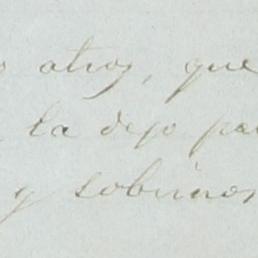 o otros, que
la dejo pa
y sobrinos